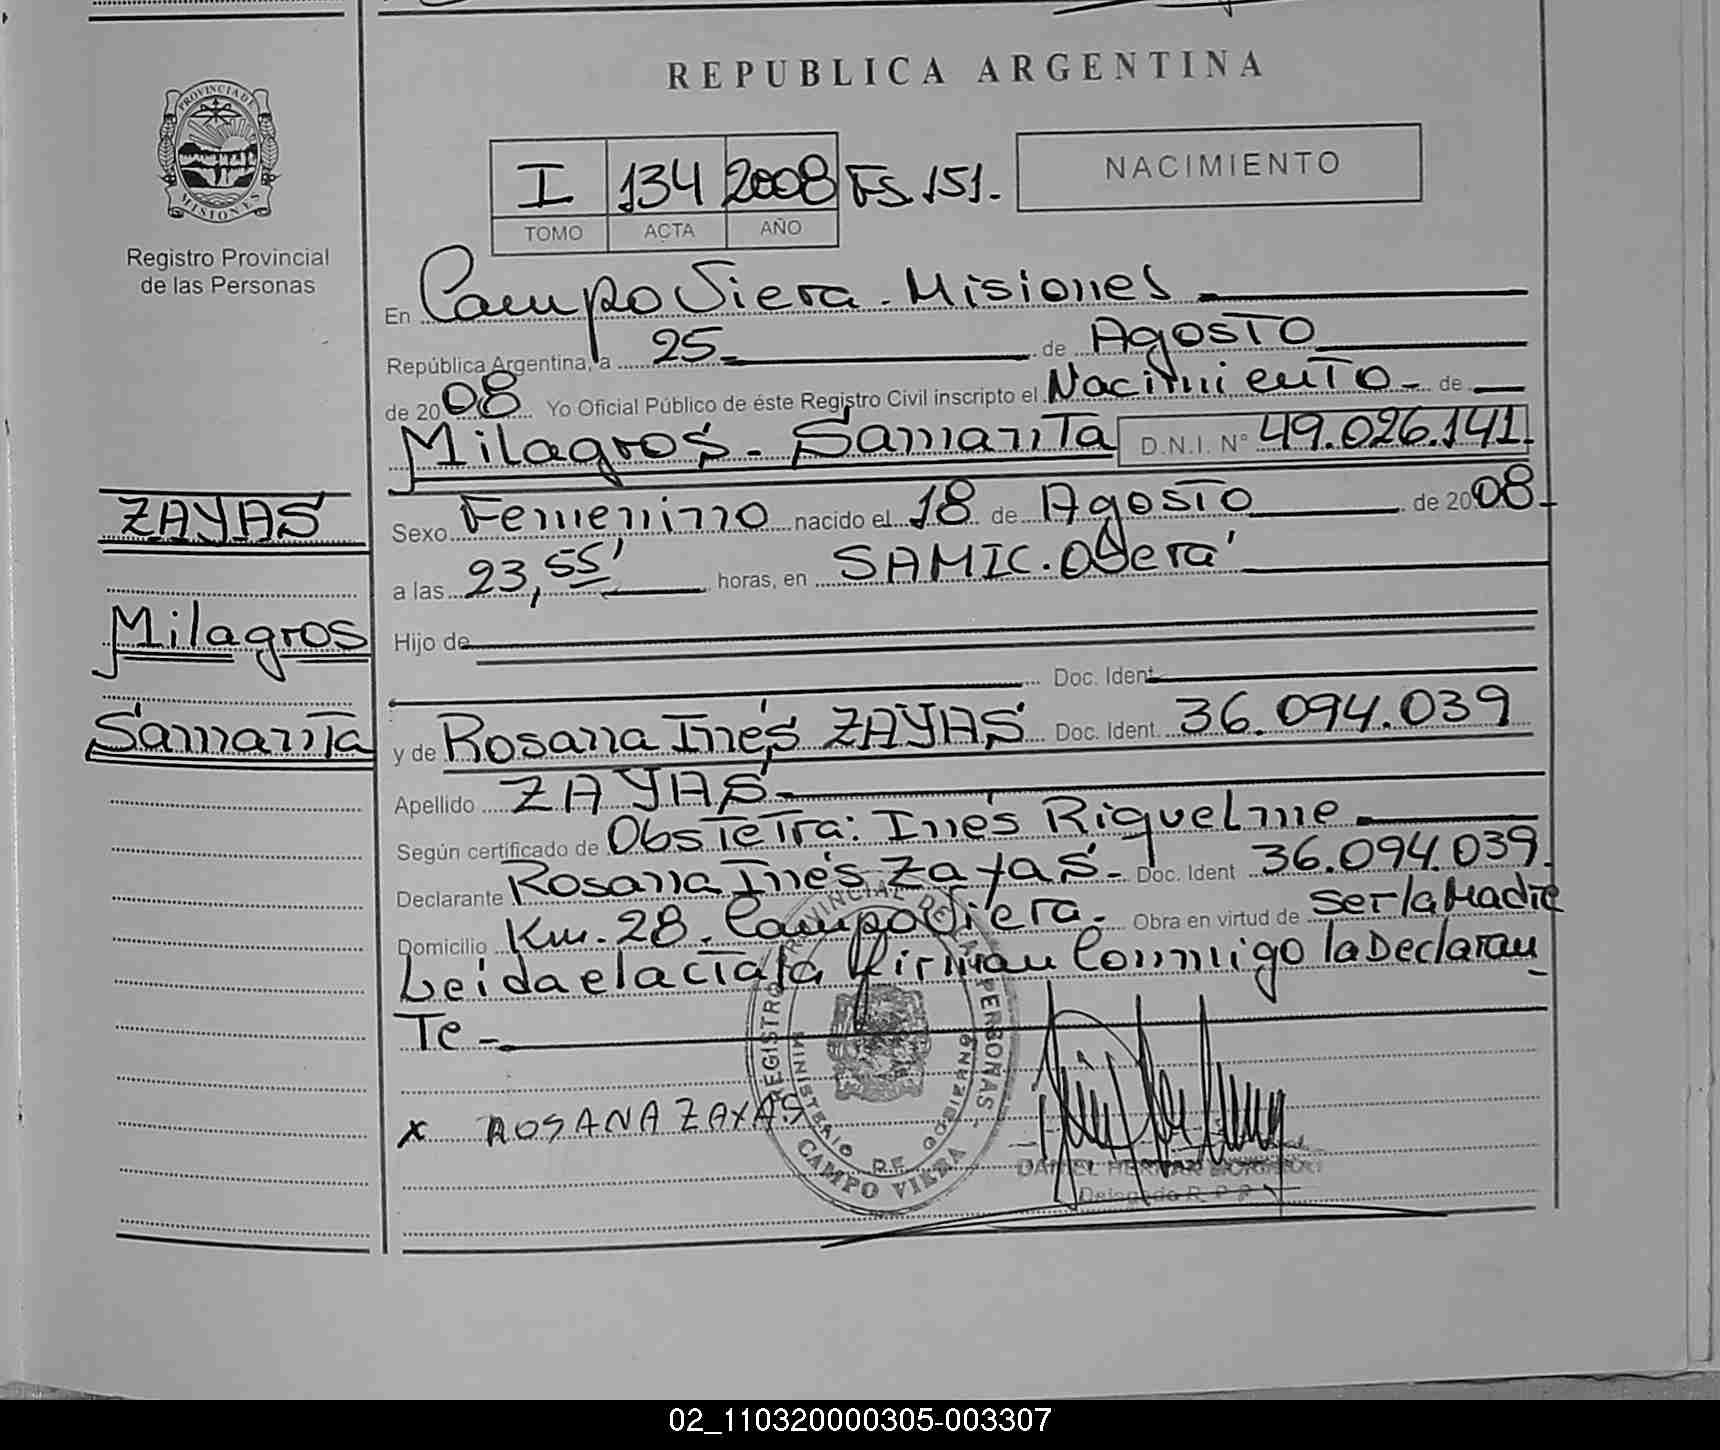 REPUBLICA ARGENTINA
PROVINCIA DE
MISIONES
Registro Provincial
de las Personas
I 134 2008 Fs 151.
TOMO ACTA AÑO
NACIMIENTO
En Campo Viera - Misiones
República Argentina, a 25 de Agosto
de 2008 Yo Oficial Público de éste Registro Civil inscripto el Nacimiento - de
Milagros - Samanta D.N.I. N° 49.026.141.
ZAYAS
Milagros
Samanta
Sexo Femenino nacido el 18 de Agosto de 2008
a las 23,55' horas, en SAMIC. Oberá
Hijo de
Doc. Ident
y de Rosana Inés ZAYAS Doc. Ident. 36.094.039
Apellido ZAYAS
Según certificado de Obstetra: Inés Riquelme
Declarante Rosana Inés Zayas - Doc. Ident 36.094.039.
Domicilio Km. 28. Campo Viera. Obra en virtud de ser la Madre
Leida el acta la firman Conmigo la Declaran
Te -
x ROSANA ZAYAS
REGISTRO PROVINCIAL DE LAS PERSONAS
MINISTERIO DE GOBIERNO
CAMPO VIERA
DANIEL HERNAN
Delegado R. P. P.
02_110320000305-003307